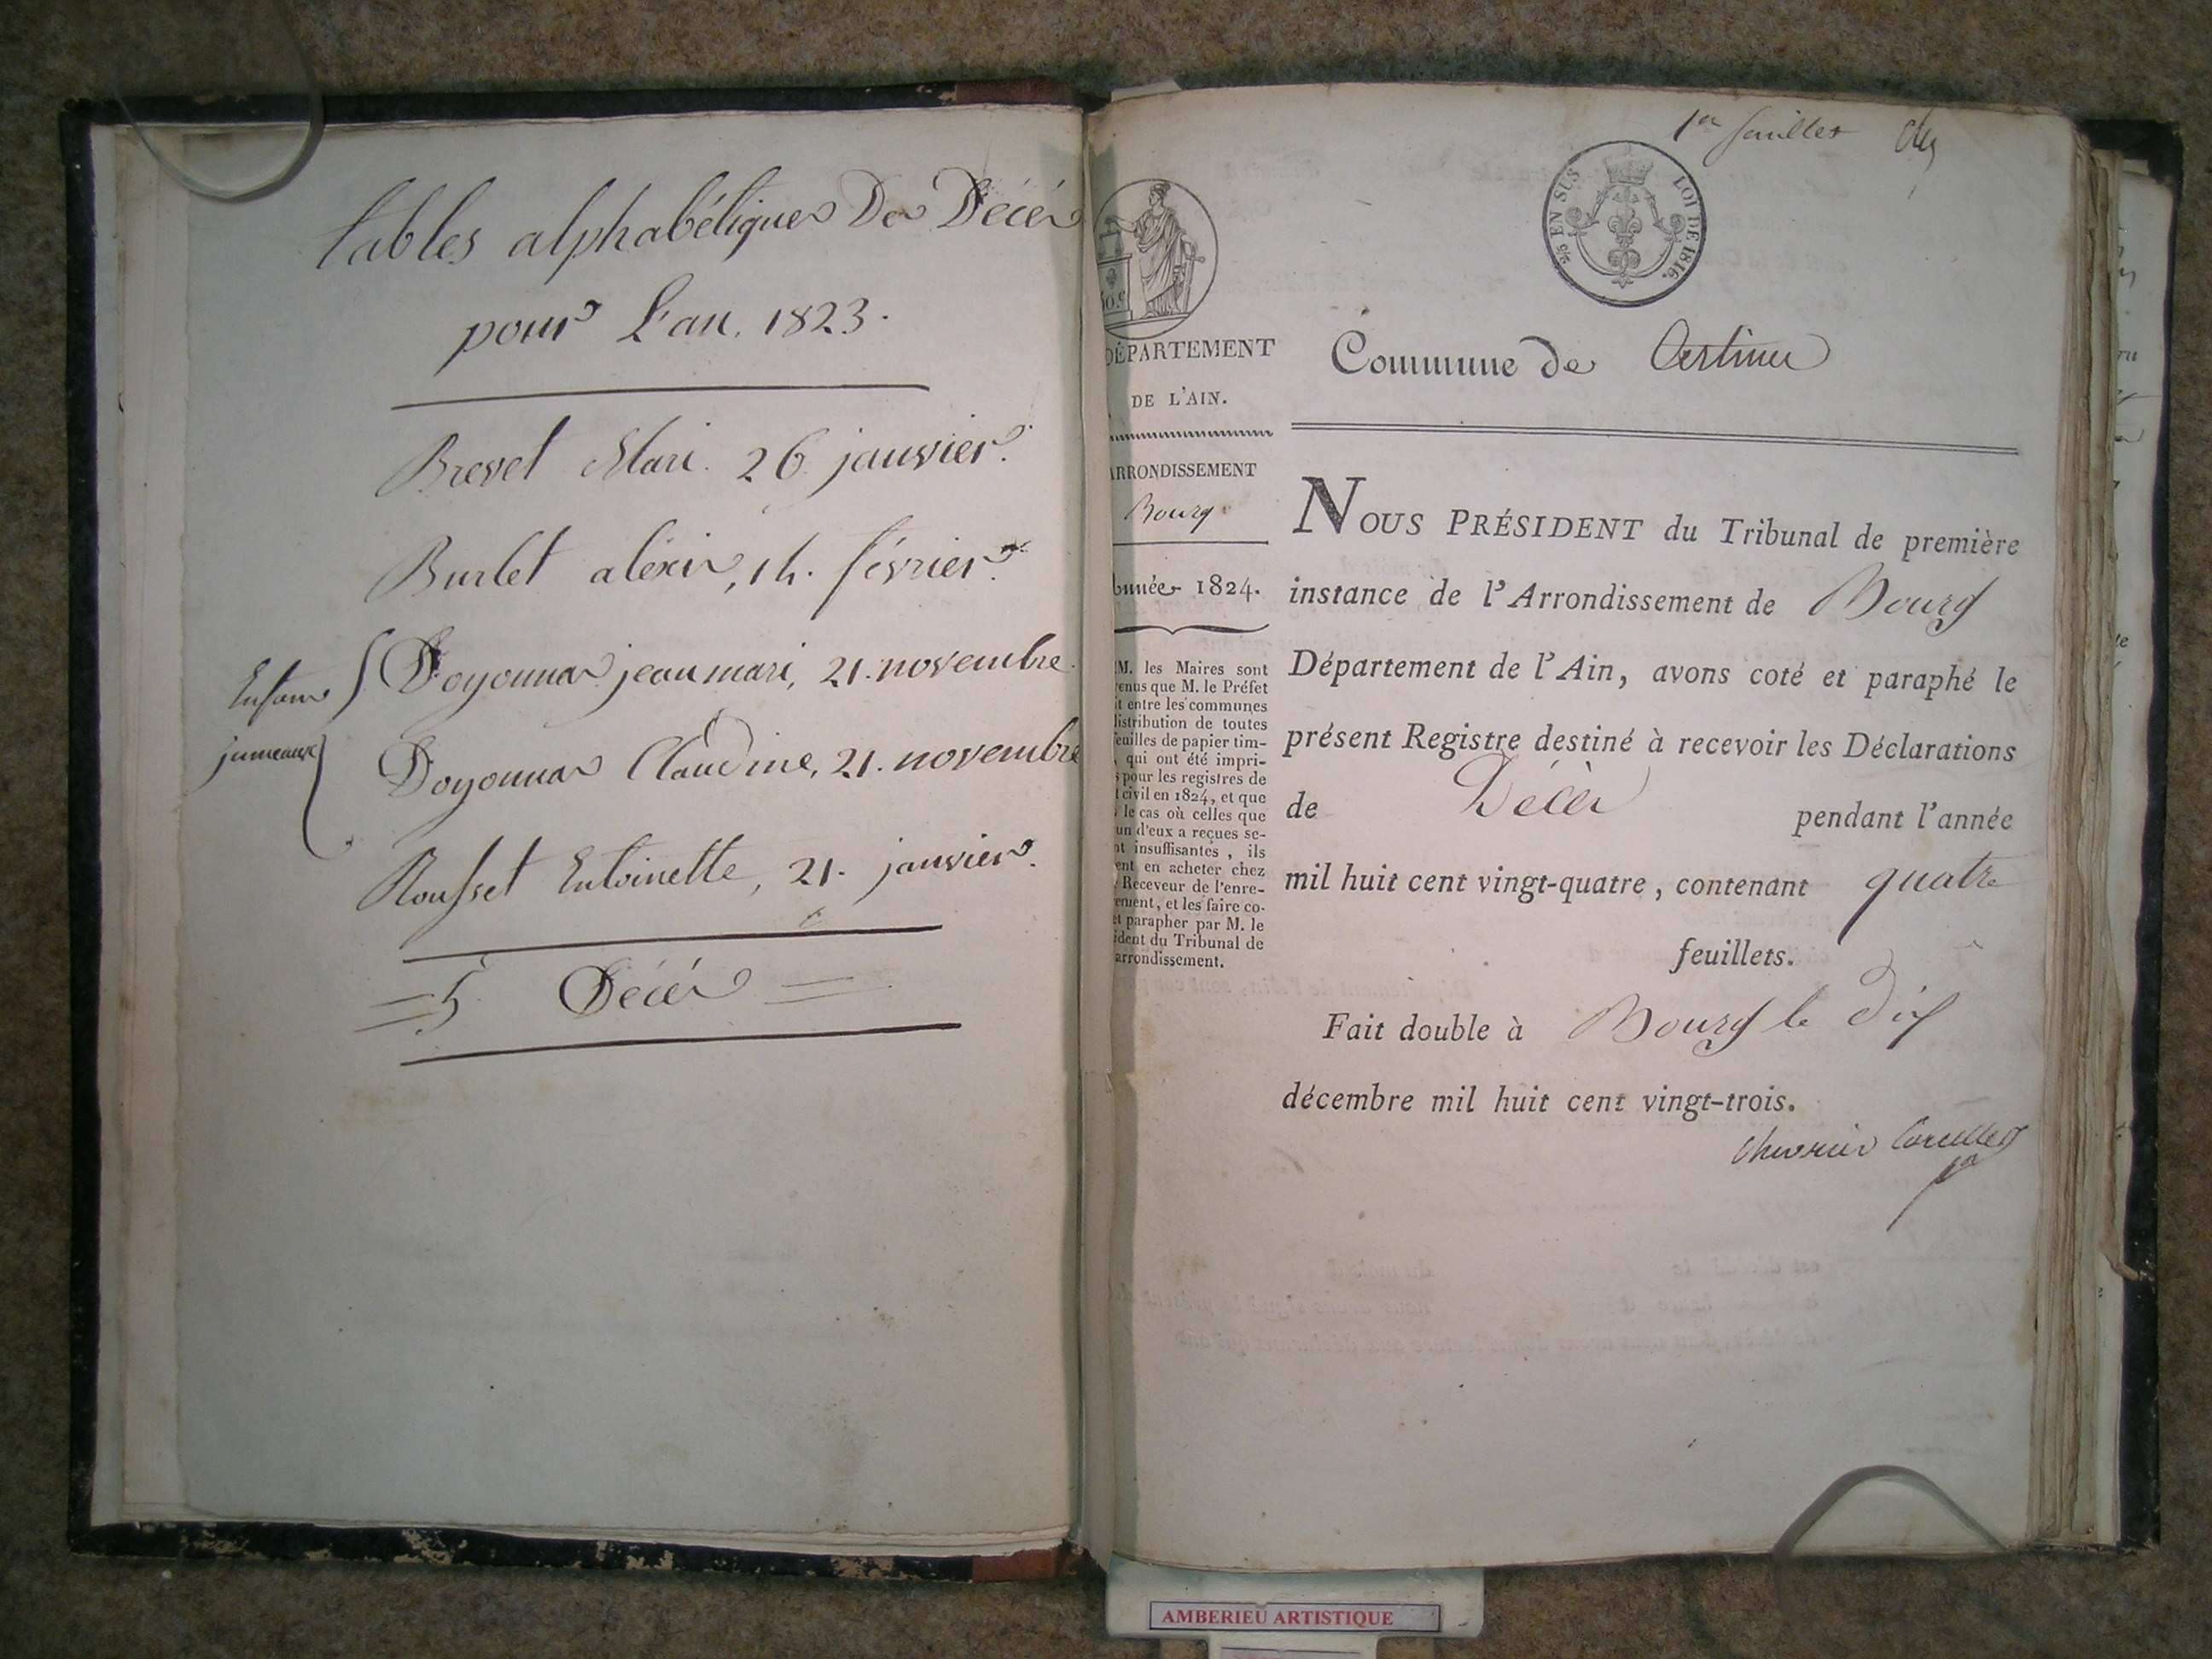 tables alphabétiques Des Décés
pour L'an. 1823.
Brevet Mari. 26. janvier.
Burlet aléxis, 14. février.
Enfans
jumeaux
Doyonnas jean mari, 21. novembre
Doyonnas Claudine, 21. novembre
Rousset Entoinette, 21. janvier.
= 5 Décés =
1er feuillet
5/10 EN SUS LOI DE 1816.
DÉPARTEMENT
DE L'AIN.
ARRONDISSEMENT
Bourg
Année 1824.
M. les Maires sont
enus que M. le Préfet
it entre les communes
listribution de toutes
feuilles de papier tim-
, qui ont été impri-
s pour les registres de
t civil en 1824, et que
s le cas où celles que
un d'eux a reçues se-
nt insuffisantes, ils
ent en acheter chez
Receveur de l'enre-
ement, et les faire co-
et parapher par M. le
ident du Tribunal de
arrondissement.
Commune de
NOUS PRÉSIDENT du Tribunal de première
instance de l'Arrondissement de Bourg
Département de l'Ain, avons coté et paraphé le
présent Registre destiné à recevoir les Déclarations
de Décès pendant l'année
mil huit cent vingt-quatre, contenant quatre
feuillets.
Fait double à Bourg le dix
décembre mil huit cent vingt-trois.
AMBERIEU ARTISTIQUE